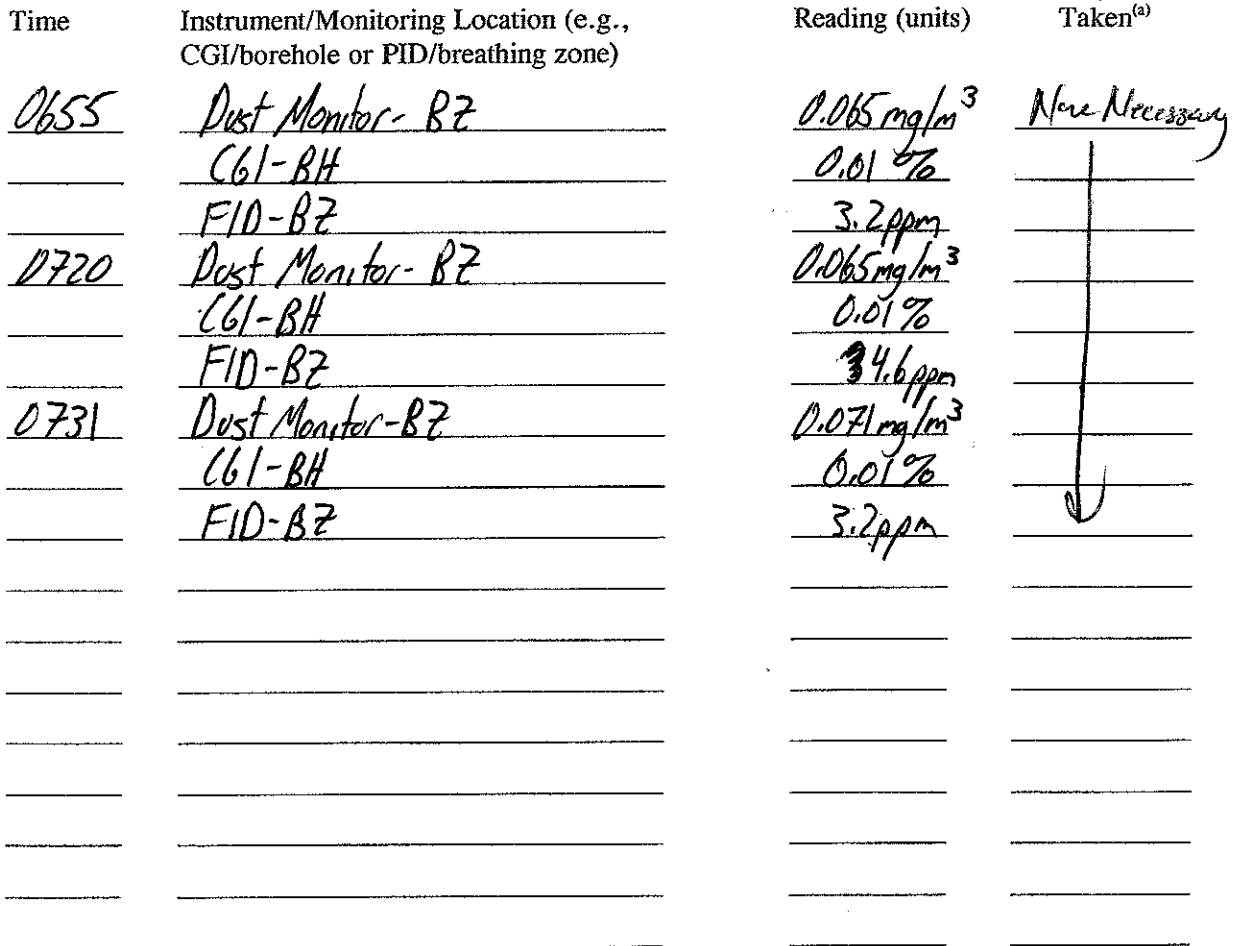 Time Instrument/Monitoring Location (e.g., Reading (units) Taken(a)
CGI/borehole or PID/breathing zone)
0655 Dust Monitor - BZ 0.065 mg/m³ None Necessary
CGI-BH 0.01 %
FID-BZ 3.2ppm
0720 Dust Monitor - BZ 0.065mg/m³
CGI-BH 0.01%
FID-BZ 4.6 ppm
0731 Dust Monitor-BZ 0.071 mg/m³
CGI-BH 0.01%
FID-BZ 3.2ppm